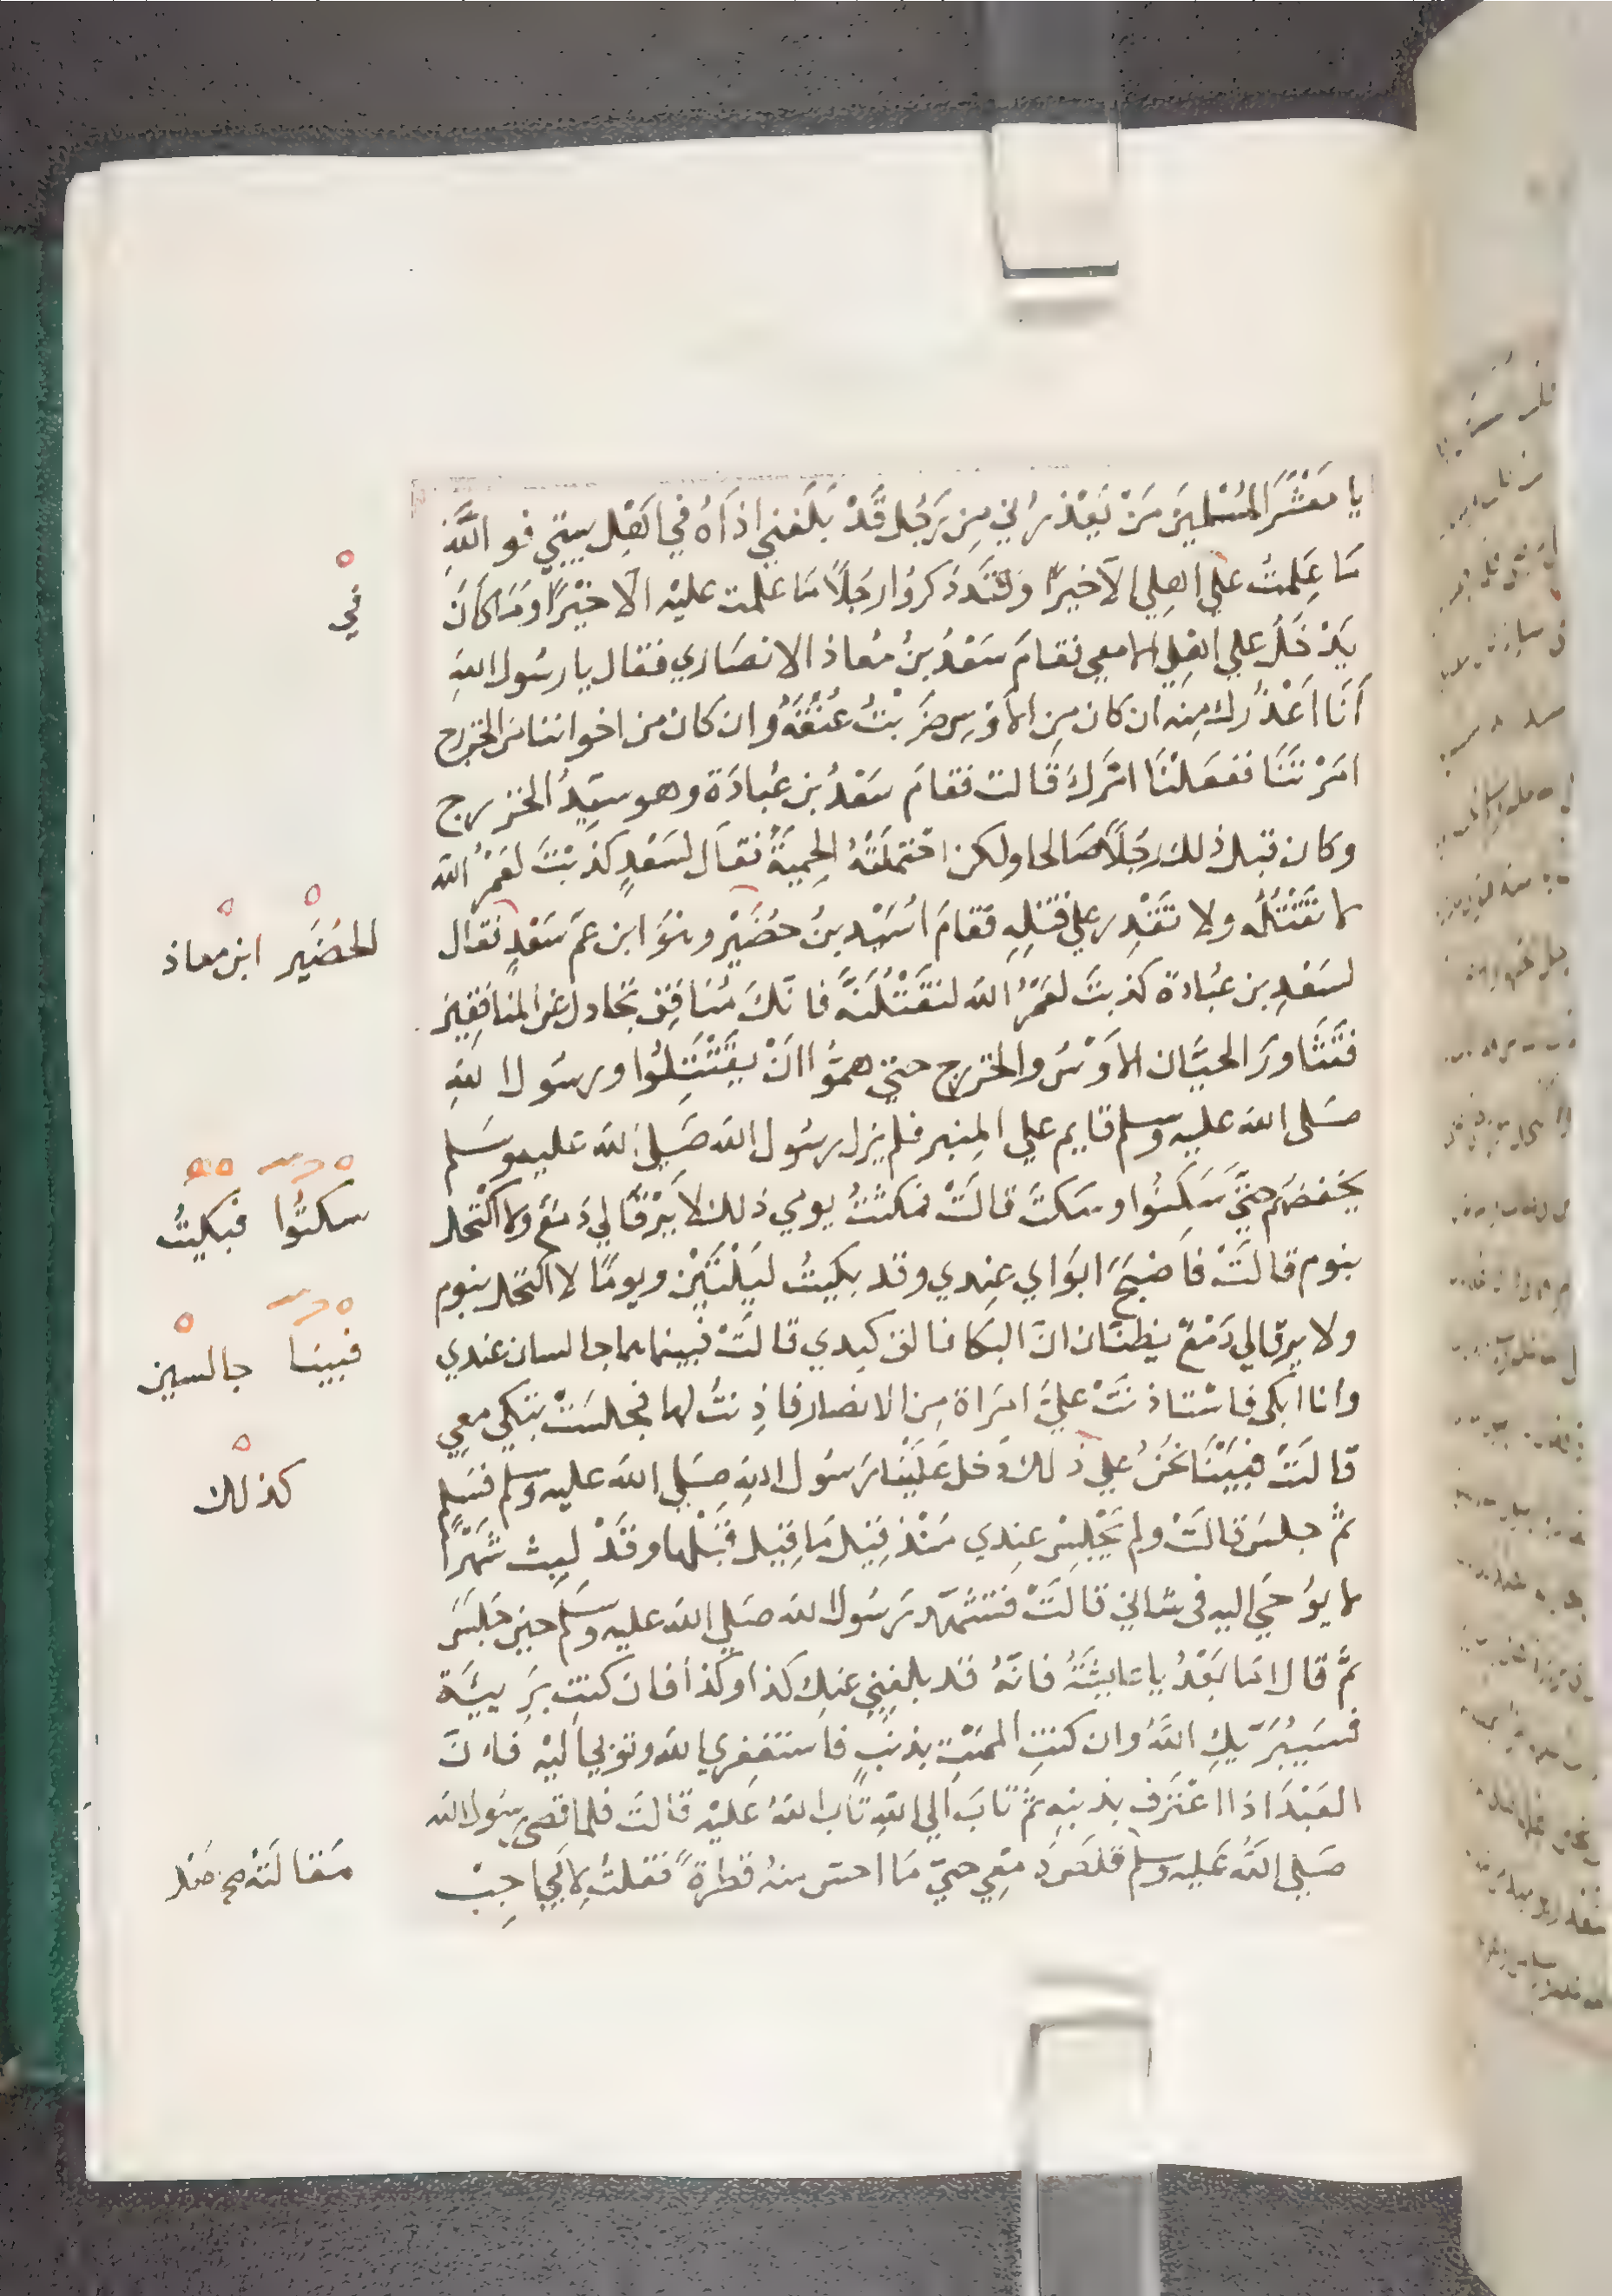 يا مَعْشَرَ المُسْلمِينَ مَنْ يَعْذرُني مِن رَجُل قَدْ بَلَغني اذَاهُ في اَهْلِ بيتي فو اللَّهِ
مَا عَلِمتُ علي اهلِي الَّا خيراً وَلقَد ذكروُا رجُلاً مَا علمت عليْه الَّا خيْراً ومَا كانَ
يَدْخُلُ علي اهْلِي الا معي فقامَ سَعْدُ بنُ مُعاذ الانصَاري فقال يا رسُول اللهِ
أَنَا اَعْذُرك مِنه ان كان مِن الاَوْسِ ضرَبْتُ عُنُقَهُ وان كان من اخواننا من الخزرج
امَرْتَنَا ففعَلْنَا امْرَكَ قَالت فقامَ سَعْدُ بن عُبادَة وهو سَيّدُ الخزرج
وكان قبل ذلك رجُلاً صَالحا ولكن احْتملَتْهُ الحِميةُ فقال لسَعْدٍ كذبْتَ لعَمْرُ الله
لا تَقْتُلُه ولا تَقْدِر علي قتلِهِ فقامَ اُسَيْد بنُ حُضَيْر وهْوَ ابن عمّ سَعْدٍ فقال
لسَعْدِ بن عُبادة كذبتَ لعَمْرُ الله لنقْتُلَنّه فانّكَ مُنَافِق تُجادل عن المنافقِينَ
فتَثَاورَ الحيَّان الاَوْسُ والخزرج حتي همُّوا انْ يقْتَتِلُوا ورسُول اللهِ
صَلى الله عليه وسلم قايم علي المِنبر فلم يزل رسُول الله صَلي الله عليه وسَلم
يخفضهم حتَّي سَكتُوا وسَكتَ قالَتْ فمكثتُ يومي ذلك لا يَرْقَا لي دَمعٌ ولا اكْتحل
بنوم قالَتْ فاَصْبحَ ابوَاي عِندي وقد بكيتُ ليْلتَيْن ويومًا لا اكتحل بنوم
ولا يرقا لي دَمْعٌ يظنّان انّ البكا فالق كبدي قالَتْ فبينما هما جالسان عندي
وانا ابكى فاسْتاذنَتْ عليَّ امرَاة مِن الانصار فاذِنتُ لها فجلسَتْ تبكي معي
قالَتْ فبَيْنَا نحنُ علي ذلك دخل عَلَيْنا رَسُول اللهِ صَلي الله عليه وسلم فسَلم
ثمّ جلسَ قالَتْ ولم يَجْلِسْ عِندي مُنْذ قِيْل مَا قيْل قبْلها وقَدْ لبِث شَهْراً
لا يوُحَي اليه فى شاني قالَتْ فتشهّد رَسُول الله صَلي الله عليه وسَلم حين جَلسَ
ثمَّ قال امَا بَعْدُ يا عايشَةُ فانّهُ قد بلغني عنِك كذا وكذا فان كنتِ بَريِيَّة
فسَيُبرّيكِ اللَّهُ وان كنتِ المَمْتِ بذنبٍ فاستغفِري الله وتوبي اليْه فانّ
العَبْدَ اذا اعْترَف بذنبه ثمّ تابَ الي اللهِ تابَ اللهُ عليْه قالت فلما قضى رسُول الله
صَلي اللَّهُ عَليه وسلم قلصَ دَمْعِي حتيّ مَا احسّ منهُ قطرةً فقلتُ لاَبي اجِبْ
في
الحُضَير ابن معاذ
سكتُوا فبكيتُ
فبينا جالسين
كذلك
مَقالتَهُ صح